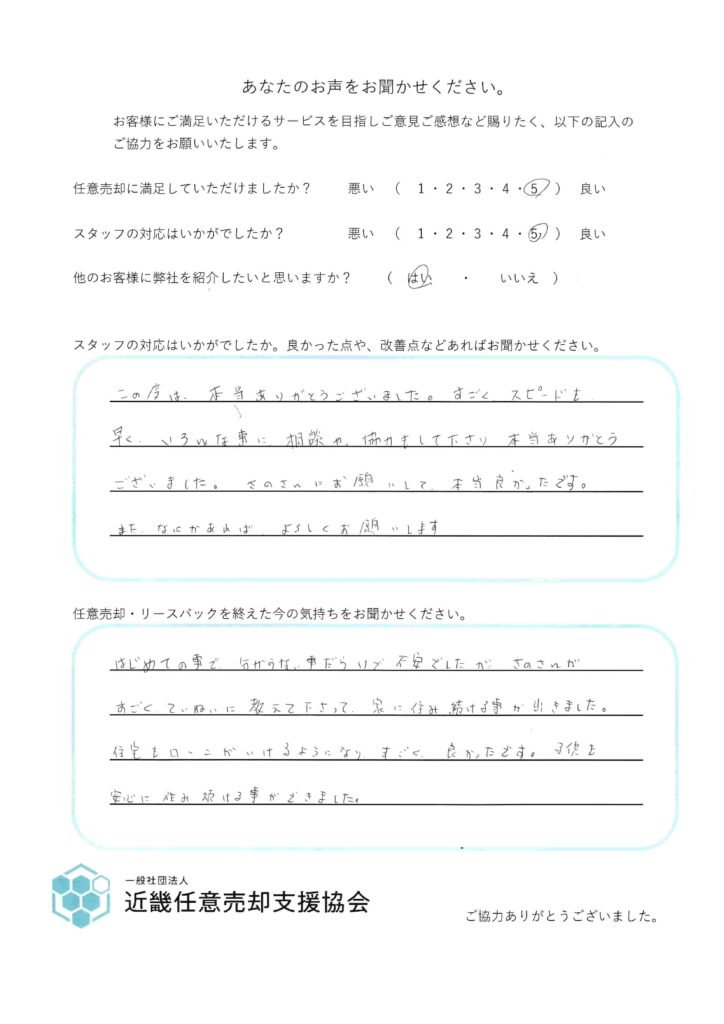 あなたのお声をお聞かせください。
お客様にご満足いただけるサービスを目指しご意見ご感想など賜りたく、以下の記入の
ご協力をお願いいたします。
任意売却に満足していただけましたか？ 悪い （ 1・2・3・4・5 ） 良い
スタッフの対応はいかがでしたか？ 悪い （ 1・2・3・4・5 ） 良い
他のお客様に弊社を紹介したいと思いますか？ （ はい ・ いいえ ）
スタッフの対応はいかがでしたか。良かった点や、改善点などあればお聞かせください。
この度は、本当ありがとうございました。すごく、スピードも
早く、いろんな事に、相談や、協力をして下さり 本当ありがとう
ございました。さのさんにお願いして、本当良かったです。
また、なにかあれば、よろしくお願いします
任意売却・リースバックを終えた今の気持ちをお聞かせください。
はじめての事で、分からない事だらけで 不安でしたが、さのさんが
すごく、ていねいに 教えて下さって、家に住み続ける事が出きました。
住宅もローンがいけるようになり、すごく、良かったです。子供も
安心に 住み続ける事ができました。
一般社団法人
近畿任意売却支援協会
ご協力ありがとうございました。